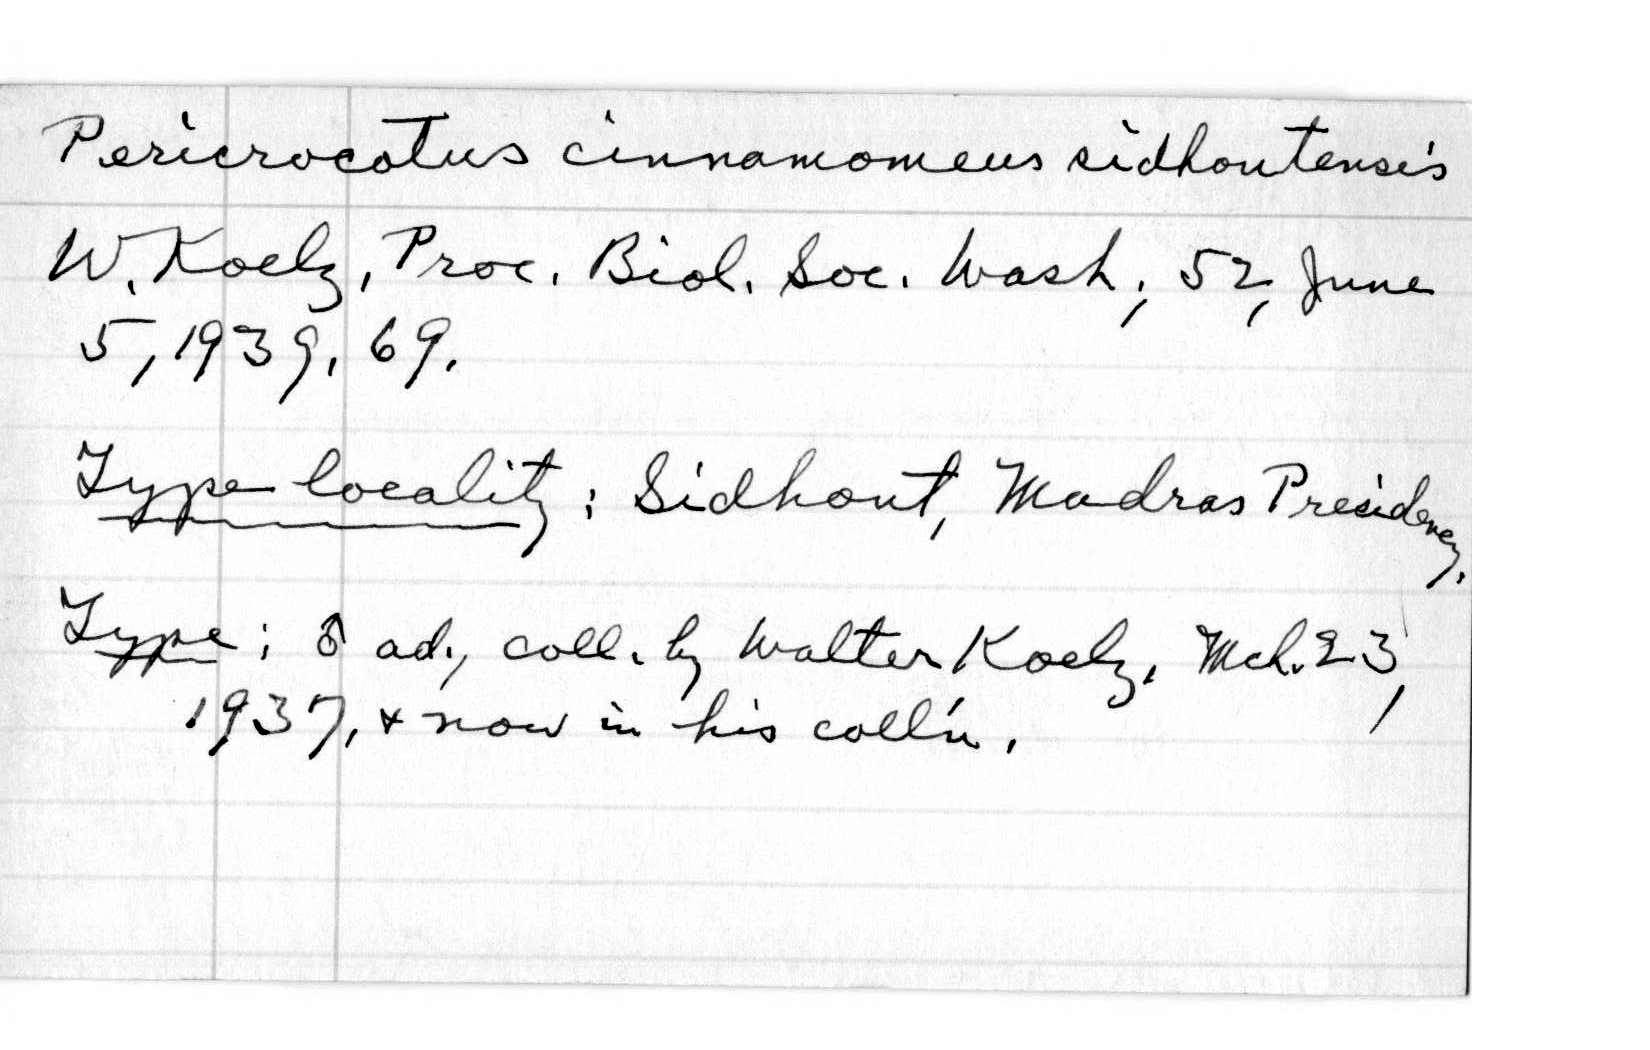 Pericrocotus cinnamomeus sidhoutensis
W. Koelz, Proc. Biol. Soc. Wash., 52, June
5, 1939, 69.
Type locality: Sidhout, Madras Presidency.
Type: ♂ ad., coll. by Walter Koelz, Mch. 23,
1937, & now in his coll'n.